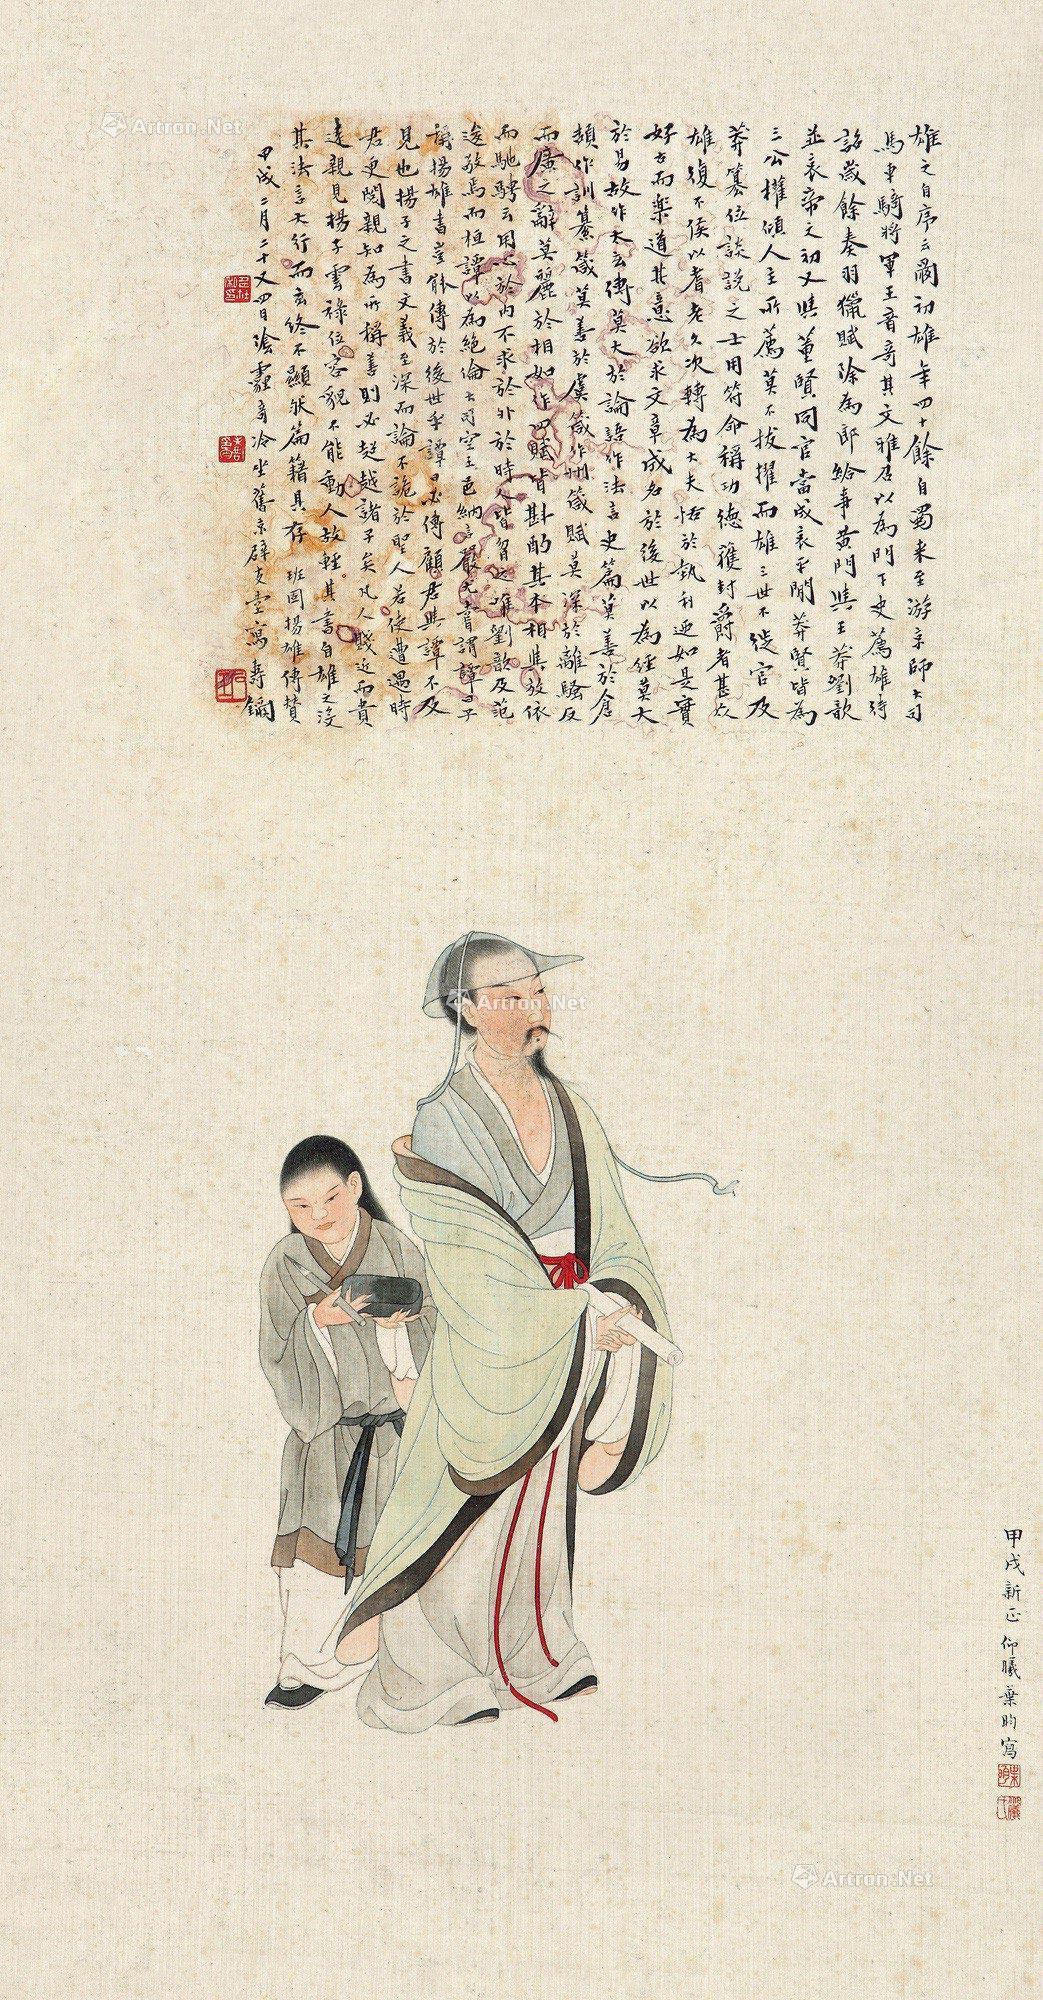 雄之自序云爾初雄年四十餘自蜀來至游京師大司
馬車騎將軍王音奇其文雅召以為門下史薦雄待
詔歲餘奏羽獵賦除為郎給事黃門與王莽劉歆
並哀帝之初又與董賢同官當成哀平間莽賢皆為
三公權傾人主所薦莫不拔擢而雄三世不徙官及
莽篡位談說之士用符命稱功德獲封爵者甚众
雄復不侯以耆老久次轉為大夫恬於埶利迺如是實
好古而樂道其意欲求文章成名於後世以為經莫大
於易故作太玄傳莫大於論語作法言史篇莫善於倉
頡作訓纂箴莫善於虞箴作州箴賦莫深於離騷反
而廣之辭莫麗於相如作四賦皆斟酌其本相與放依
而馳騁云用心於內不求於外於時人皆曶之唯劉歆及范
逡敬焉而桓譚以為絕倫大司空王邑納言嚴尤嘗謂譚曰子
稱揚雄書豈能傳於後世乎譚曰必傳顧君與譚不及
見也揚子之書文義至深而論不詭於聖人若使遭遇時
君更閱親知為所稱善則必超越諸子矣凡人賤近而貴
遠親見揚子雲祿位容貌不能動人故輕其書自雄之沒
其法言大行而玄終不顯然篇籍具存 班固揚雄傳贊
甲戌二月二十又四日陰霾奇冷坐舊京辟支堂寫 壽鑈
甲戌新正仰曦葉昀寫
Artron.Net
Artron.Net
Artron.Net